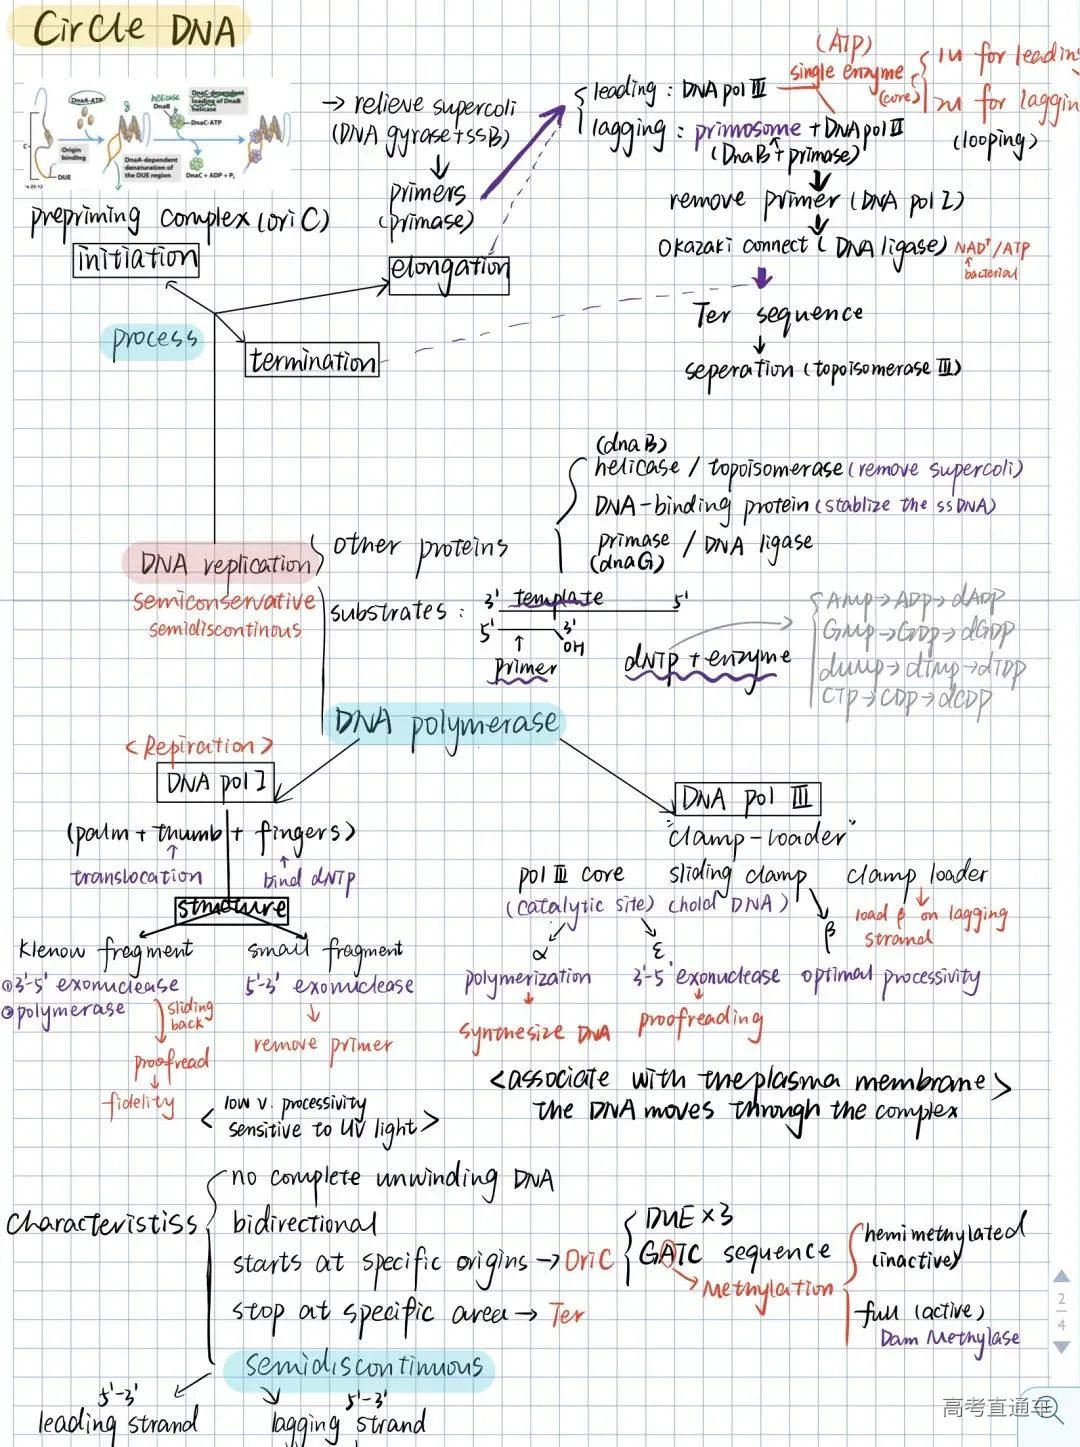 Circle DNA
DnaA-ATP
helicase
DnaB
DnaC-dependent
loading of DnaB
helicase
DnaC-ATP
Origin
binding
DUE
DnaA-dependent
denaturation of
the DUE region
DnaC + ADP + Pi
→ relieve supercoli
(DNA gyrase+ssB)
primers
(primase)
leading : DNA pol III
lagging : primosome + DNA pol III
(DnaB + primase)
(ATP)
single enzyme
(core)
1个 for leadin
2个 for laggin
(looping)
remove primer (DNA pol I)
Okazaki connect (DNA ligase) NAD+/ATP
bacterial
Ter sequence
seperation (topoisomerase III)
prepriming complex (oriC)
initiation
elongation
process
termination
DNA replication
semiconservative
semidiscontinous
other proteins
(dnaB)
helicase / topoisomerase (remove supercoli)
DNA-binding protein (stablize the ssDNA)
primase / DNA ligase
(dnaG)
substrates :
3' template 5'
5' 3'
OH
primer
dNTP + enzyme
AMP→ADP→dADP
GMP→GDP→dGDP
dUMP→dTMP→dTDP
CTP→CDP→dCDP
DNA polymerase
<Repiration>
DNA pol I
(palm + thumb + fingers)
translocation
bind dNTP
structure
Klenow fragment
①3'-5' exonuclease
②polymerase
sliding
back
proofread
fidelity
small fragment
5'-3' exonuclease
remove primer
<low v. processivity
sensitive to UV light>
DNA pol III
"clamp-loader"
pol III core
(catalytic site)
α
polymerization
synthesize DNA
ε
3'-5' exonuclease
proofreading
sliding clamp
(hold DNA)
β
optimal processivity
clamp loader
load β on lagging
strand
<associate with the plasma membrane>
the DNA moves through the complex
characteristiss
no complete unwinding DNA
bidirectional
starts at specific origins → OriC
stop at specific area → Ter
semidiscontinuous
DUE ×3
GATC sequence
Methylation
hemimethylated
(inactive)
full (active)
Dam Methylase
5'-3'
leading strand
5'-3'
lagging strand
2
4
高考直通车